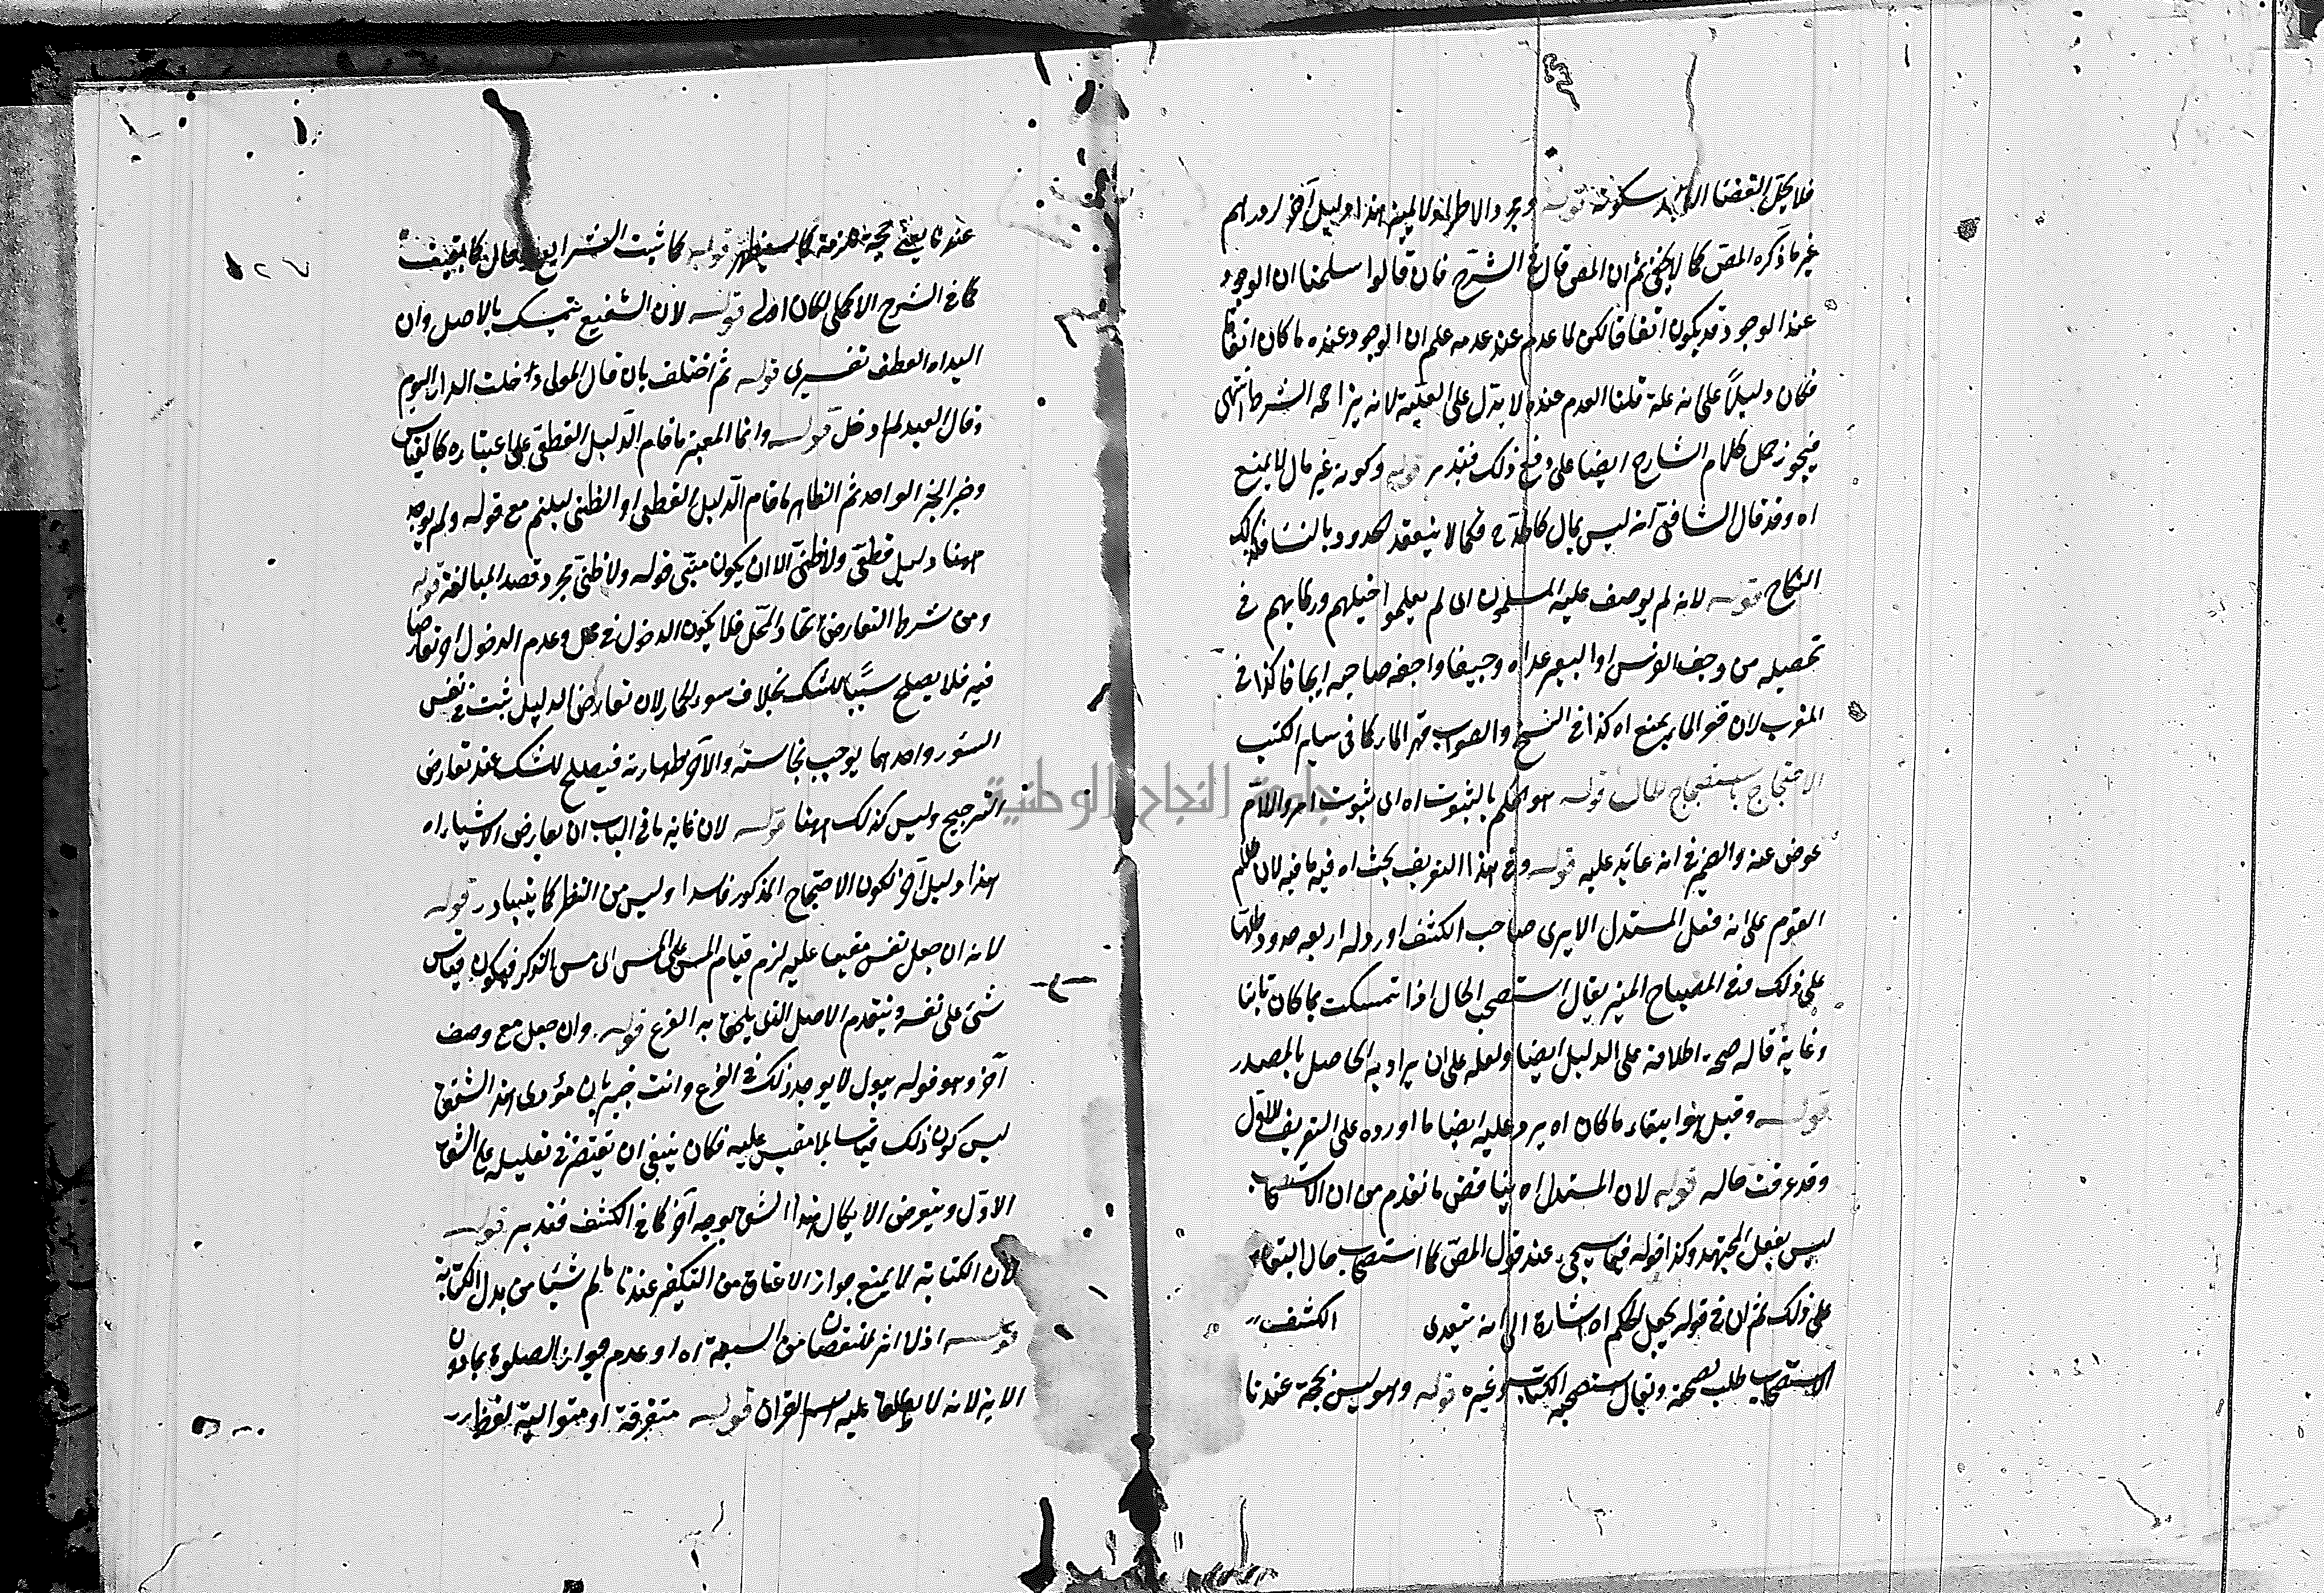 غير ما ذكره المص كما لا يخفى ثم ان المص قال في الشرح فان قالوا سلمنا ان الوجود
عند الوجود قد يكون اتفاقا لكن لما عدم عند عدمه علم ان الوجود عنده ما كان اتفاقا
فكان دليلا على انه علة قلنا العدم عنده لا يدل على العلية لانه يزاحمه الشرط انتهى
فيجوز حمل كلام الشارح ايضا على وفق ذلك فتدبر قوله وكونه غير مال لا يمنع
اه وقد قال الشافعي انه ليس بمال كالحدود فكما لا ينعقد الحدود بالنساء فكذلك
النكاح قوله لانه لم يوجف عليه المسلمون اى لم يعلموا خيلهم وركابهم في
تحصيله من وجف الفرس او البعير عداه وجيفا واجفه صاحبه ايجافا كذا في
المغرب لان قهر الماء يمنع اه كذا في النسخ والصواب قهر الماء كما في ساير الكتب
الاحتجاج باستصحاب الحال قوله هو الحكم بالثبوت اه اى بثبوت امر واللام
عوض عنه والضمير في انه عائد عليه قوله وفي هذا التعريف بحث اه فيه ما فيه لان كلام
القوم على انه فعل المستدل الا يرى صاحب الكشف اورد له اربعة حدود كلها
على ذلك وفي المصباح المنير يقال استصحب الحال اذا تمسكت بما كان ثابتا
وغاية قاله صحة اطلاقه على الدليل ايضا ولعله على ان يراد به الحاصل بالمصدر
قوله وقيل هو ابقاء ما كان اه يرد عليه ايضا ما اورده على التعريف الاول
وقد عرفت حاله قوله لان المستدل اه يناقض ما تقدم من ان الاستصحاب
ليس بفعل المجتهد وكذا قوله فيما سيجيء عند قول المص كما استصحب حال البقاء
على ذلك ثم ان في قوله يجعل الحكم اه اشارة الى انه متعدى الكشف
الاستصحاب طلب الصحبة ويقال استصحبه الكتاب وغيره قوله وهو ليس بحجة عندنا
عندنا يعني حجة ملزمة قوله كما ثبت الشرايع
كما في الشرح الاكملي لكان اولى قوله لان الشفيع يتمسك بالاصل وان
اليد اه العطف تفسيرى قوله ثم اختلف بان قال المولى دخلت الدار اليوم
وقال العبد لم ادخل قوله وانما المعتبر ما قام الدليل القطعي على اعتباره كالقياس
وخبر الواحد ثم الظاهر ما قام الدليل القطعي او الظني ليلتئم مع قوله ولم يوجد
ههنا دليل قطعي ولا ظني الا ان يكون مبنى قوله ولا ظني مجرد قصد المبالغة قوله
ومن شرط التعارض اتحاد المحل فلا يكون الدخول في محل وعدم الدخول اخر تعارضا
فيه فلا يصلح سببا للشك بخلاف سور الحمار لان تعارض الدليل ثبت في نفس
السور واحدهما يوجب نجاسته والآخر طهارته فيصلح للشك عند تعارض
الترجيح وليس كذلك ههنا قوله لان غاية ما في الباب ان تعارض الاشباه اه
هذا دليل آخر لكون الاحتجاج المذكور فاسدا وليس من النظر كما يتبادر قوله
لانه ان جعل نفس مقيسا عليه لزم قياس المس على المس اى مس الذكر فيكون قياس
شئ على نفسه وينقدم الاصل الذى يلحق به الفرع قوله وان جعل مع وصف
آخر وهو قوله يبول لا يوجد ذلك في الفرع وانت خبير بان مؤدى هذا الشق
ليس كون ذلك قياسا بلا مقيس عليه فكان ينبغى ان يقتصر في تعليله على الشق
الاول ويتعرض الابطال هذا الشق بوجه آخر كما في الكشف فتدبر قوله
لان الكتابة لا يمنع جواز الاعتاق من التكفير عندنا ما لم شيئا من بدل الكتابة
قوله اذ لا اثر للنقصان من السبعة اه او عدم جواز الصلوة بما دون
الاية لانه لا يطلق عليه اسم القران قوله متفرقة او متوالية لفظ
جامعة النجاح الوطنية